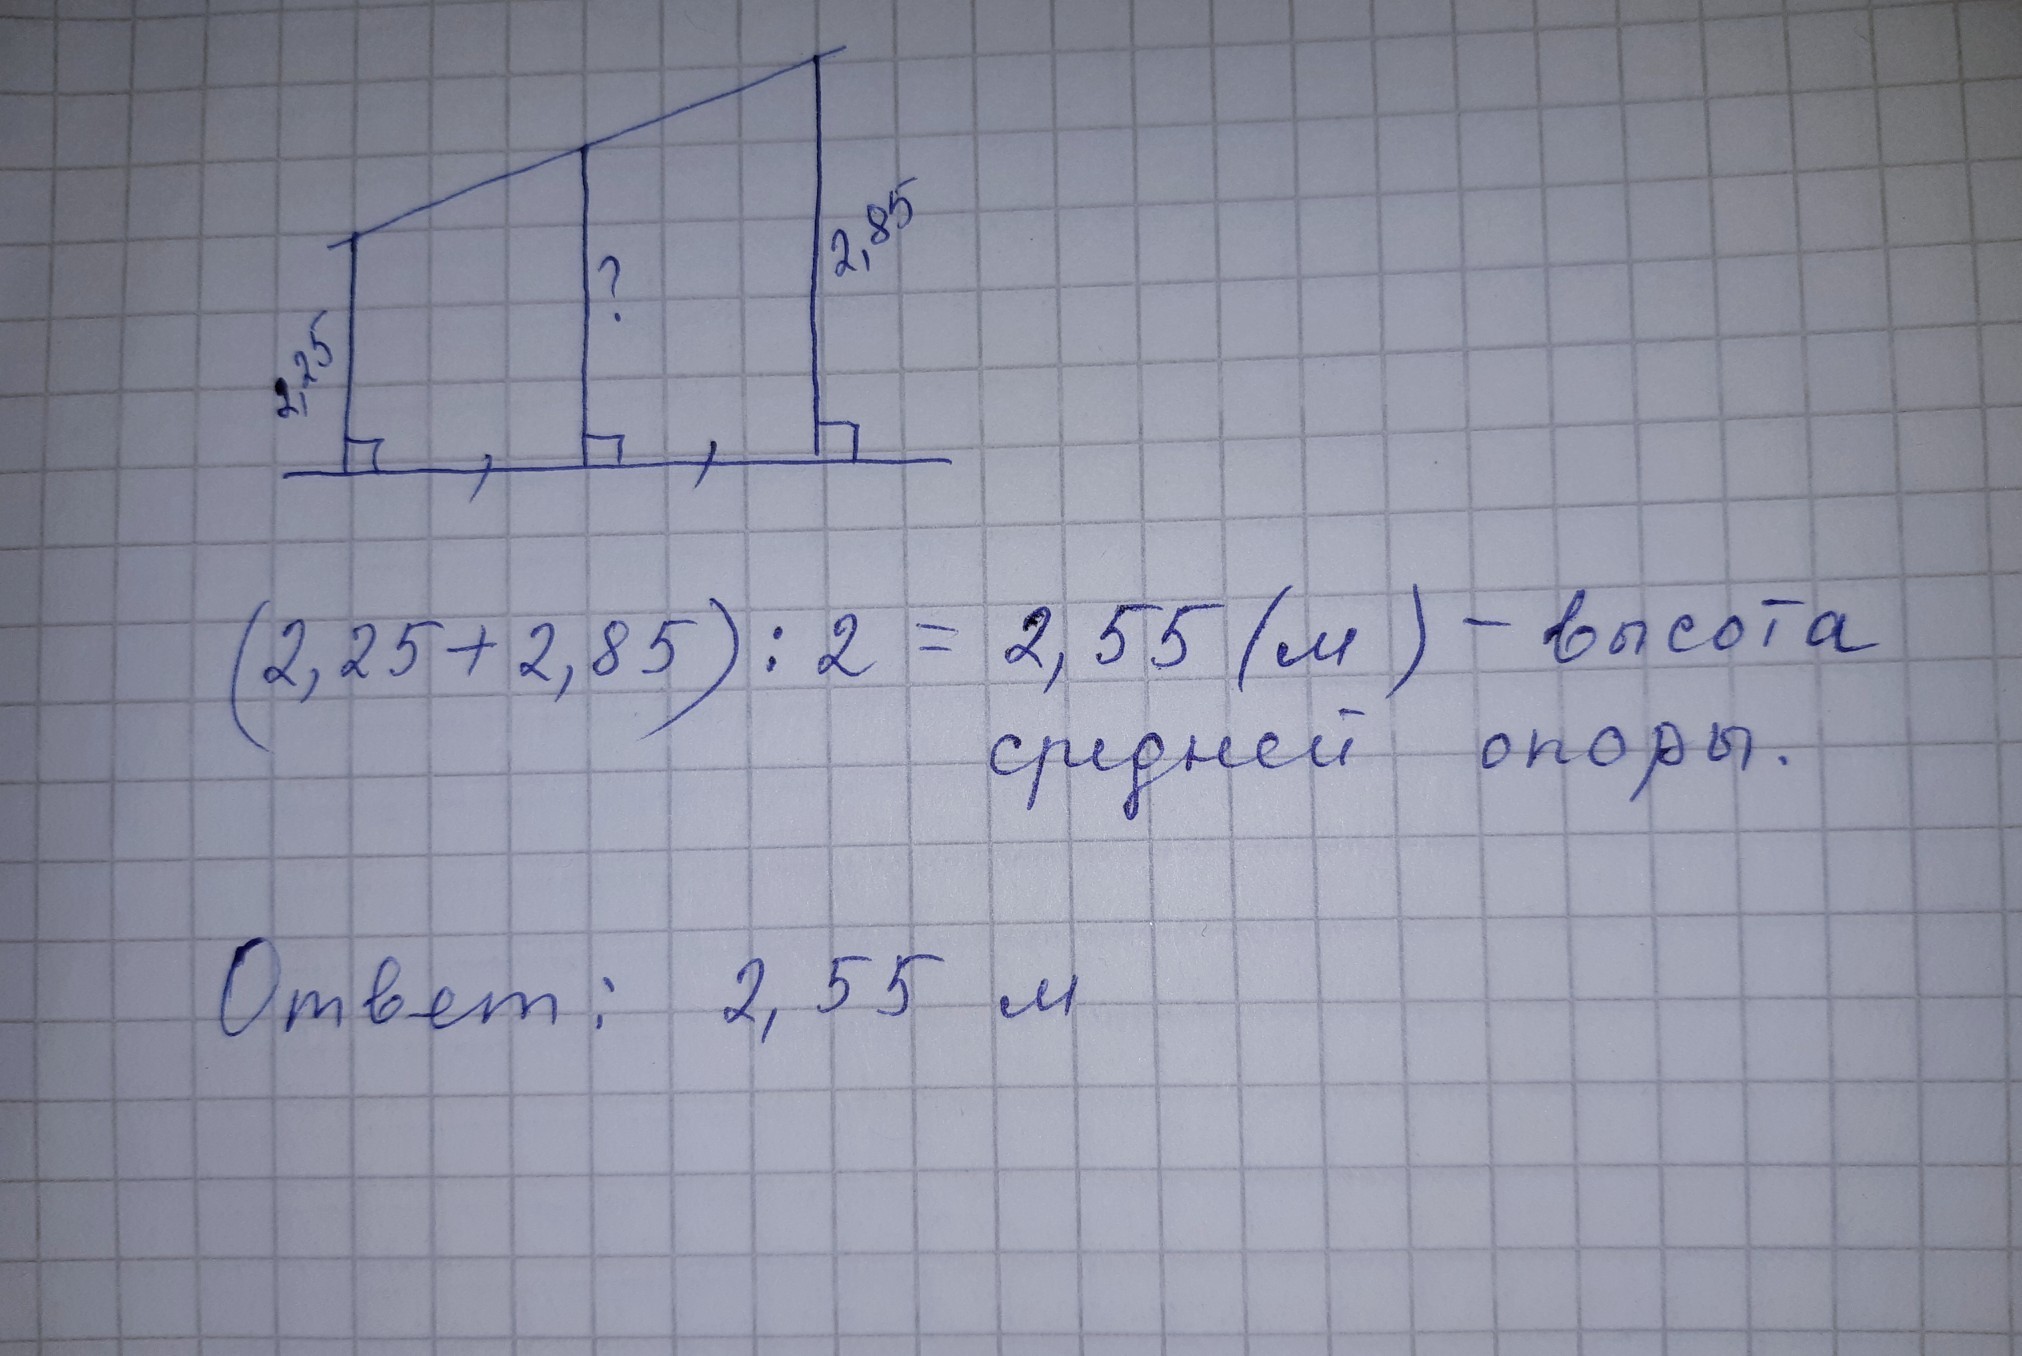 2,25
?
2,85
(2,25+2,85):2=2,55(м)-высота
средней опоры.
Ответ: 2,55 м